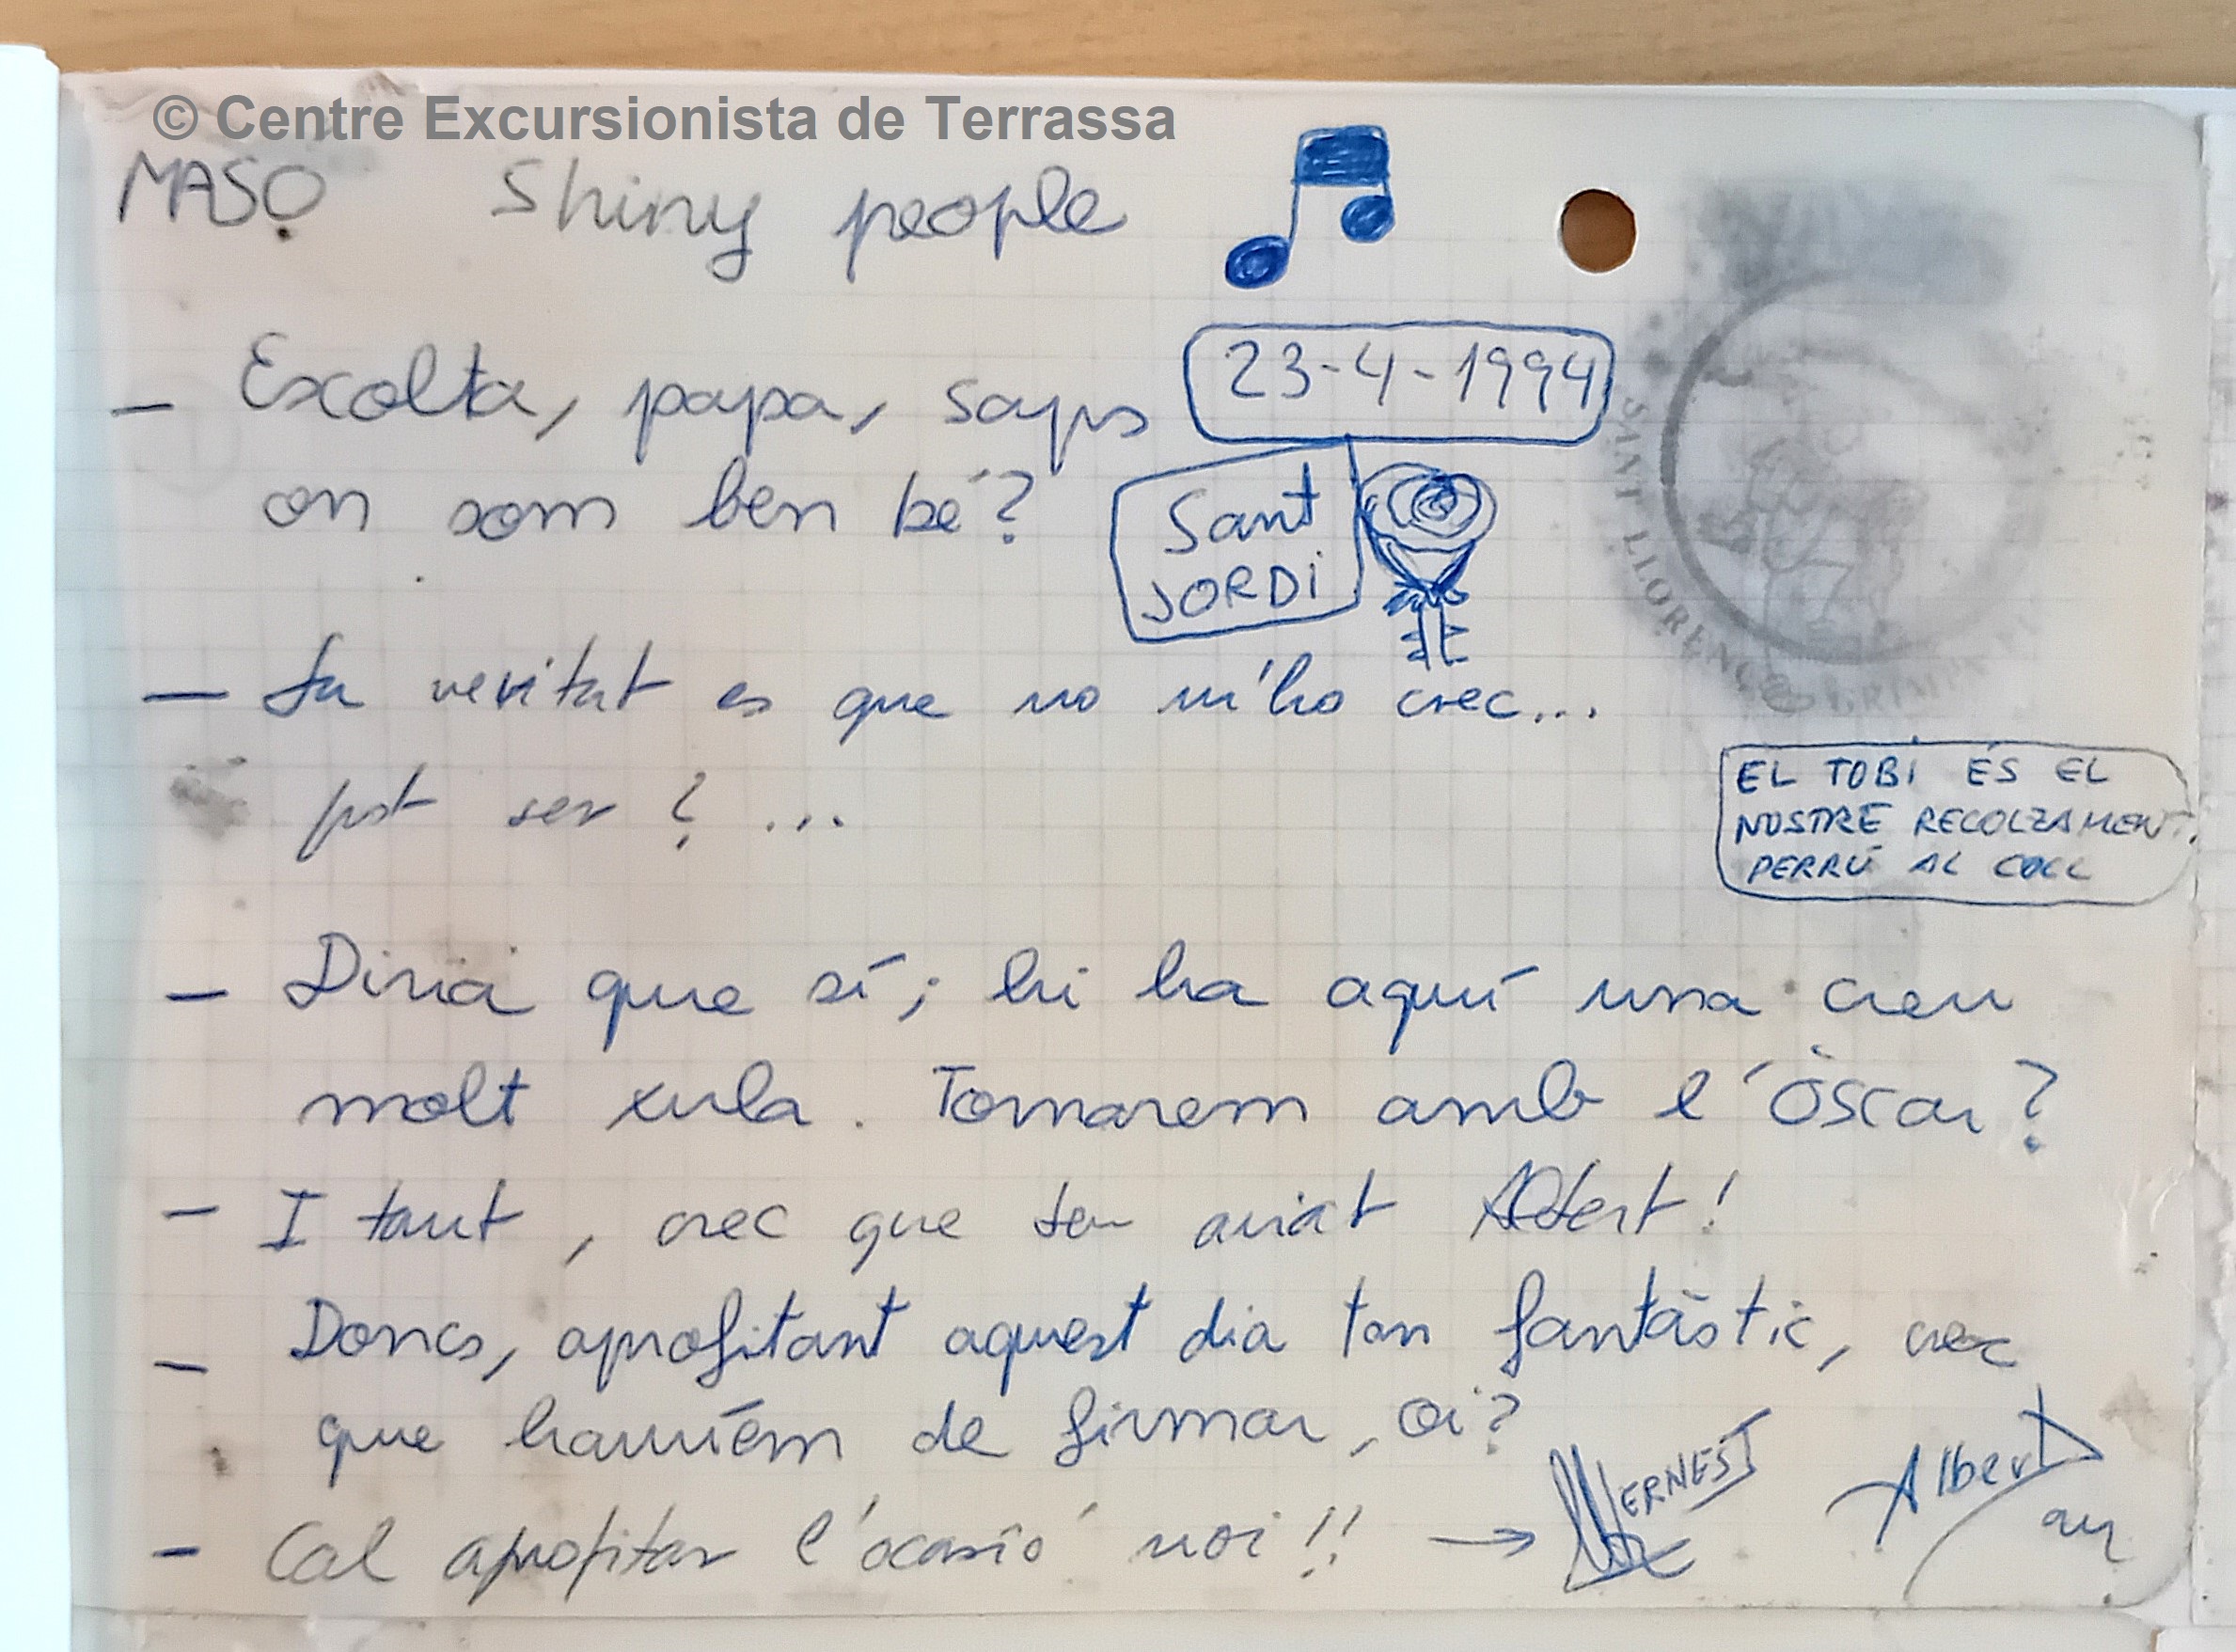 © Centre Excursionista de Terrassa
MASO Shiny people
23-4-1994
- Escolta, papa, saps
on som ben bé?
Sant
JORDI
SANT LLORENÇ
- La veritat es que no m'ho crec...
pot ser? ...
EL TOBI ÉS EL
NOSTRE RECOLZAMENT.
PERRÚ AL COLL
- Diria que sí; hi ha aquí una creu
molt xula. Tornarem amb l'Òscar?
- I tant, crec que ser aviat Albert!
- Doncs, aprofitant aquest dia tan fantàstic, crec
que hauríem de firmar, oi?
- Cal aprofitar l'ocasió noi!! → ERNEST Albert